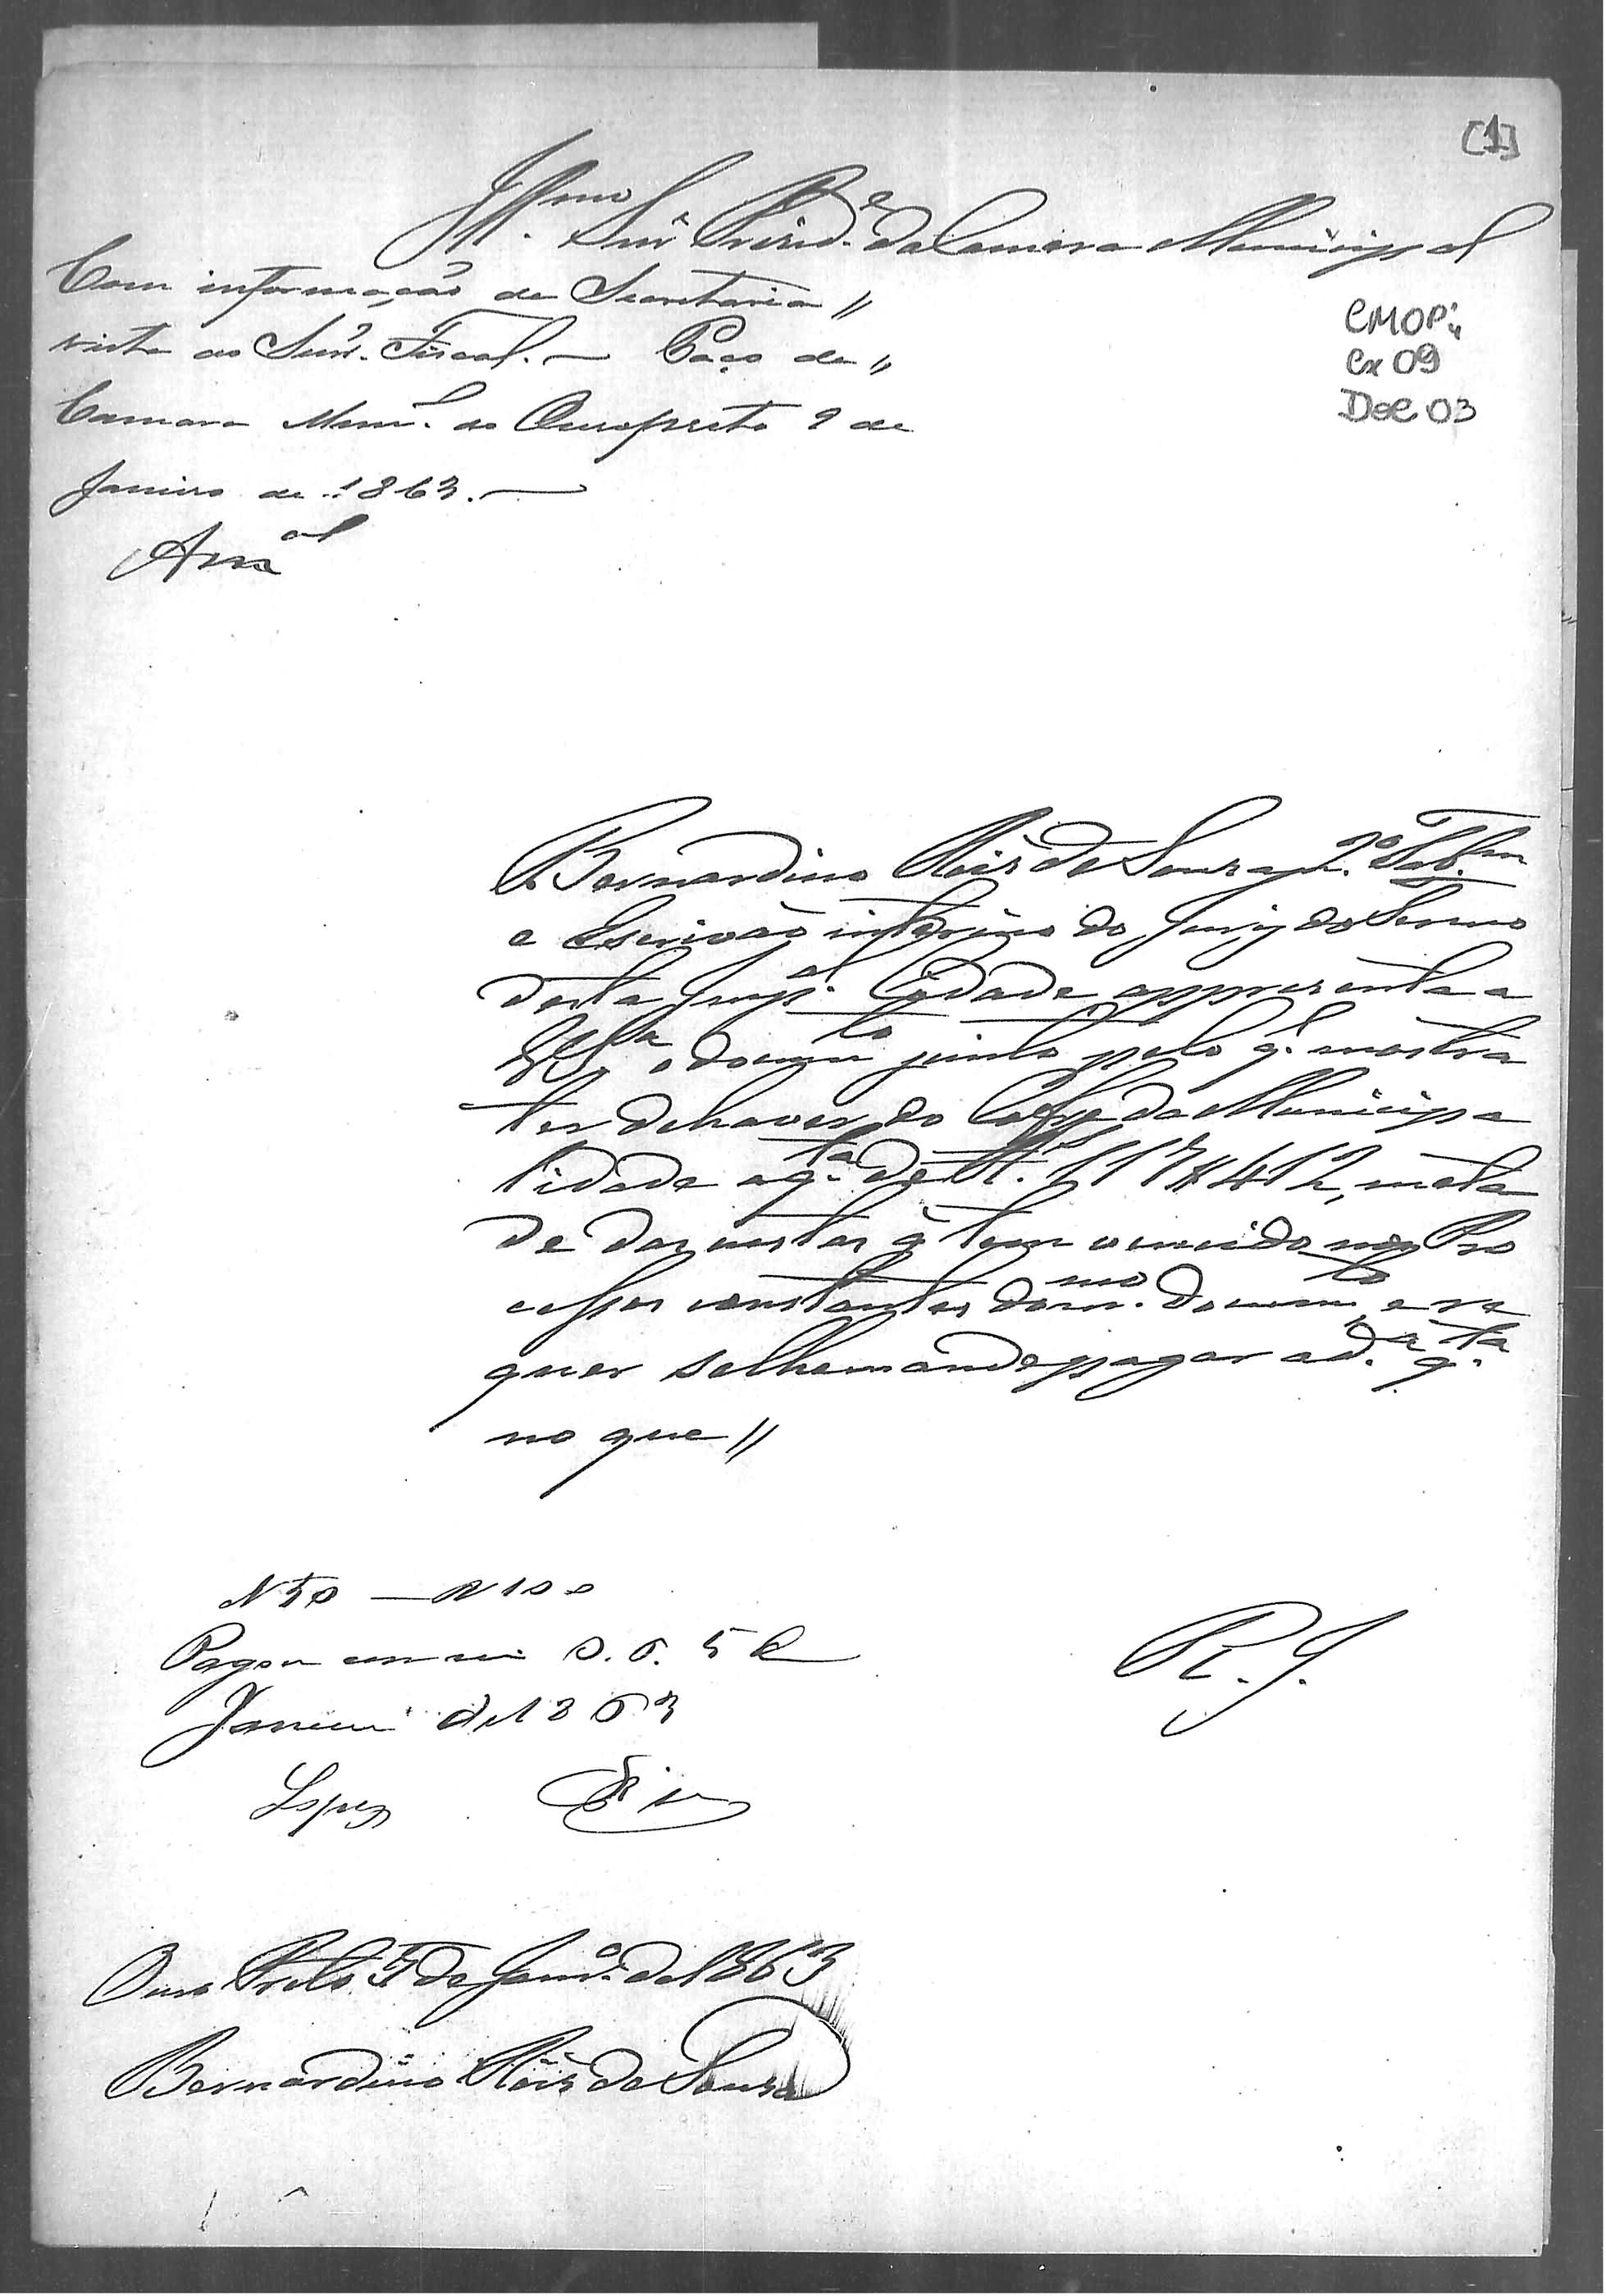 [1]
Illmo. Snr. Presid.e da Camara Municipal
Com informação da Secretaria //
vista ao Snr. Fiscal. — Paço da //
Camara Mun.l do Ouropreto 9 de
Janeiro de 1863. —
Am.al
CMOP;
Cx 09
Doc 03
Bernardino Róis de Souza, 2.º Tab.am
e Escrivão interino do Jury do Termo
desta Imp.al Cidade appresenta a
VS.a o docum.to junto pelo q. mostra
ter de haver do Cofre da Municipa
lidade a q.ta de R.s 117#412, meta
de das custas q̃ tem vencido nos Pro
cessos constantes do m.mo docum.to, e re
quer se lhe mande pagar a d.a q.ta
no que //
N 50 — R 100
Pagou
Janeiro de 1863
Lopes
R. J.
Ouro Preto 5 de Janr.o de 1863
Bernardino Róis de Souza